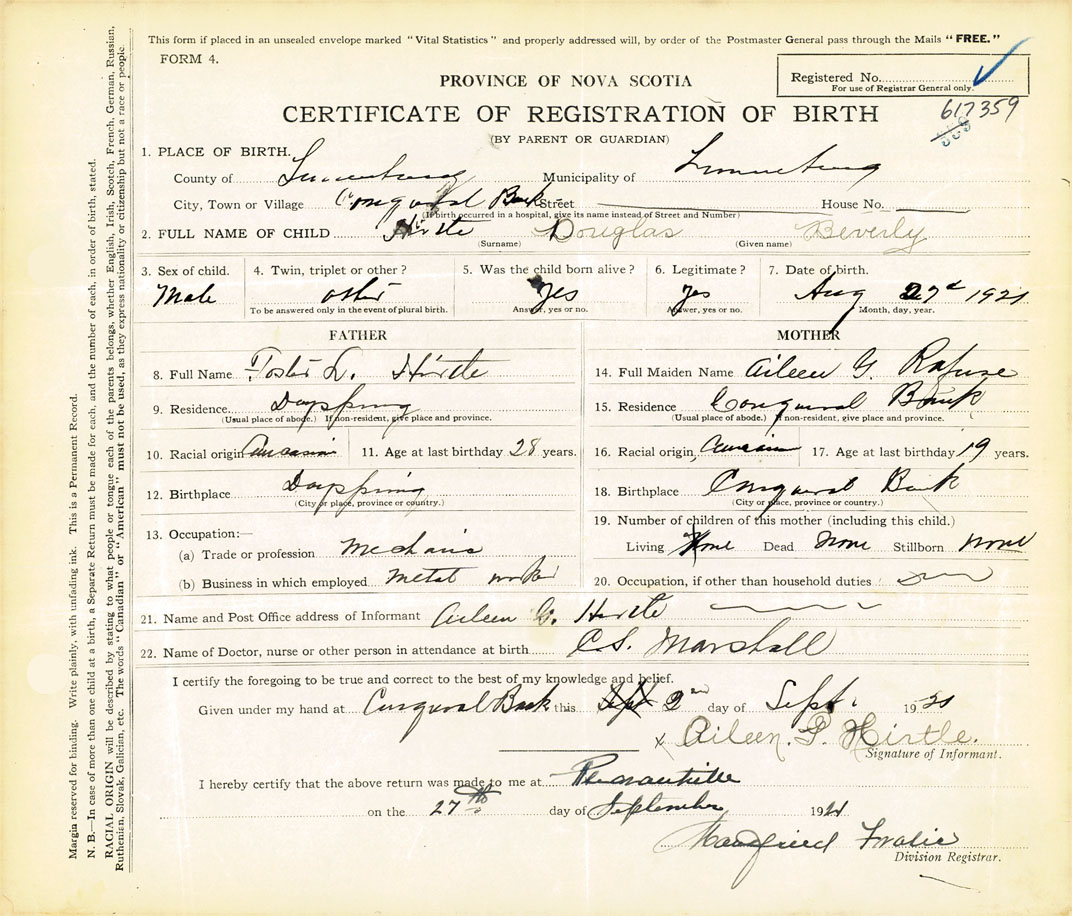 This form if placed in an unsealed envelope marked "Vital Statistics" and properly addressed will, by order of the Postmaster General pass through the Mails "FREE."
FORM 4.
Registered No.
For use of Registrar General only.
PROVINCE OF NOVA SCOTIA
617359
CERTIFICATE OF REGISTRATION OF BIRTH
(BY PARENT OR GUARDIAN)
1. PLACE OF BIRTH.
County of Lunenburg Municipality of Lunenburg
City, Town or Village Conquerall Bank Street House No.
(If birth occurred in a hospital, give its name instead of Street and Number)
2. FULL NAME OF CHILD Hirtle Douglas Beverly
(Surname) (Given name)
3. Sex of child. 4. Twin, triplet or other? 5. Was the child born alive? 6. Legitimate? 7. Date of birth.
Male other Yes Yes Aug 27d 1921
To be answered only in the event of plural birth. Answer, yes or no. Answer, yes or no. Month, day, year.
FATHER MOTHER
8. Full Name Foster L. Hirtle
14. Full Maiden Name Aileen G. Rafuse
9. Residence
(Usual place of abode.) If non-resident, give place and province.
15. Residence Conquerall Bank
(Usual place of abode.) If non-resident, give place and province.
10. Racial origin 11. Age at last birthday 28 years.
16. Racial origin 17. Age at last birthday 19 years.
12. Birthplace
(City or place, province or country.)
18. Birthplace Conquerall Bank
(City or place, province or country.)
13. Occupation:—
(a) Trade or profession Mechanic
(b) Business in which employed Metal worker
19. Number of children of this mother (including this child.)
Living None Dead None Stillborn None
20. Occupation, if other than household duties
21. Name and Post Office address of Informant Aileen G. Hirtle
22. Name of Doctor, nurse or other person in attendance at birth C.S. Marshall
I certify the foregoing to be true and correct to the best of my knowledge and belief.
Given under my hand at Conquerall Bank this Sept 2nd day of Sept. 1921
x Aileen. G. Hirtle.
Signature of Informant.
I hereby certify that the above return was made to me at Pleasantville
on the 27th day of September 1921
Division Registrar.
Margin reserved for binding. Write plainly, with unfading ink. This is a Permanent Record.
N. B.—In case of more than one child at a birth, a Separate Return must be made for each, and the number of each, in order of birth, stated.
RACIAL ORIGIN will be described by stating to what people or tongue each of the parents belongs, whether English, Irish, Scotch, French, German, Russian,
Ruthenian, Slovak, Galician, etc. The words "Canadian" or "American" must not be used, as they express nationality or citizenship but not a race or people.